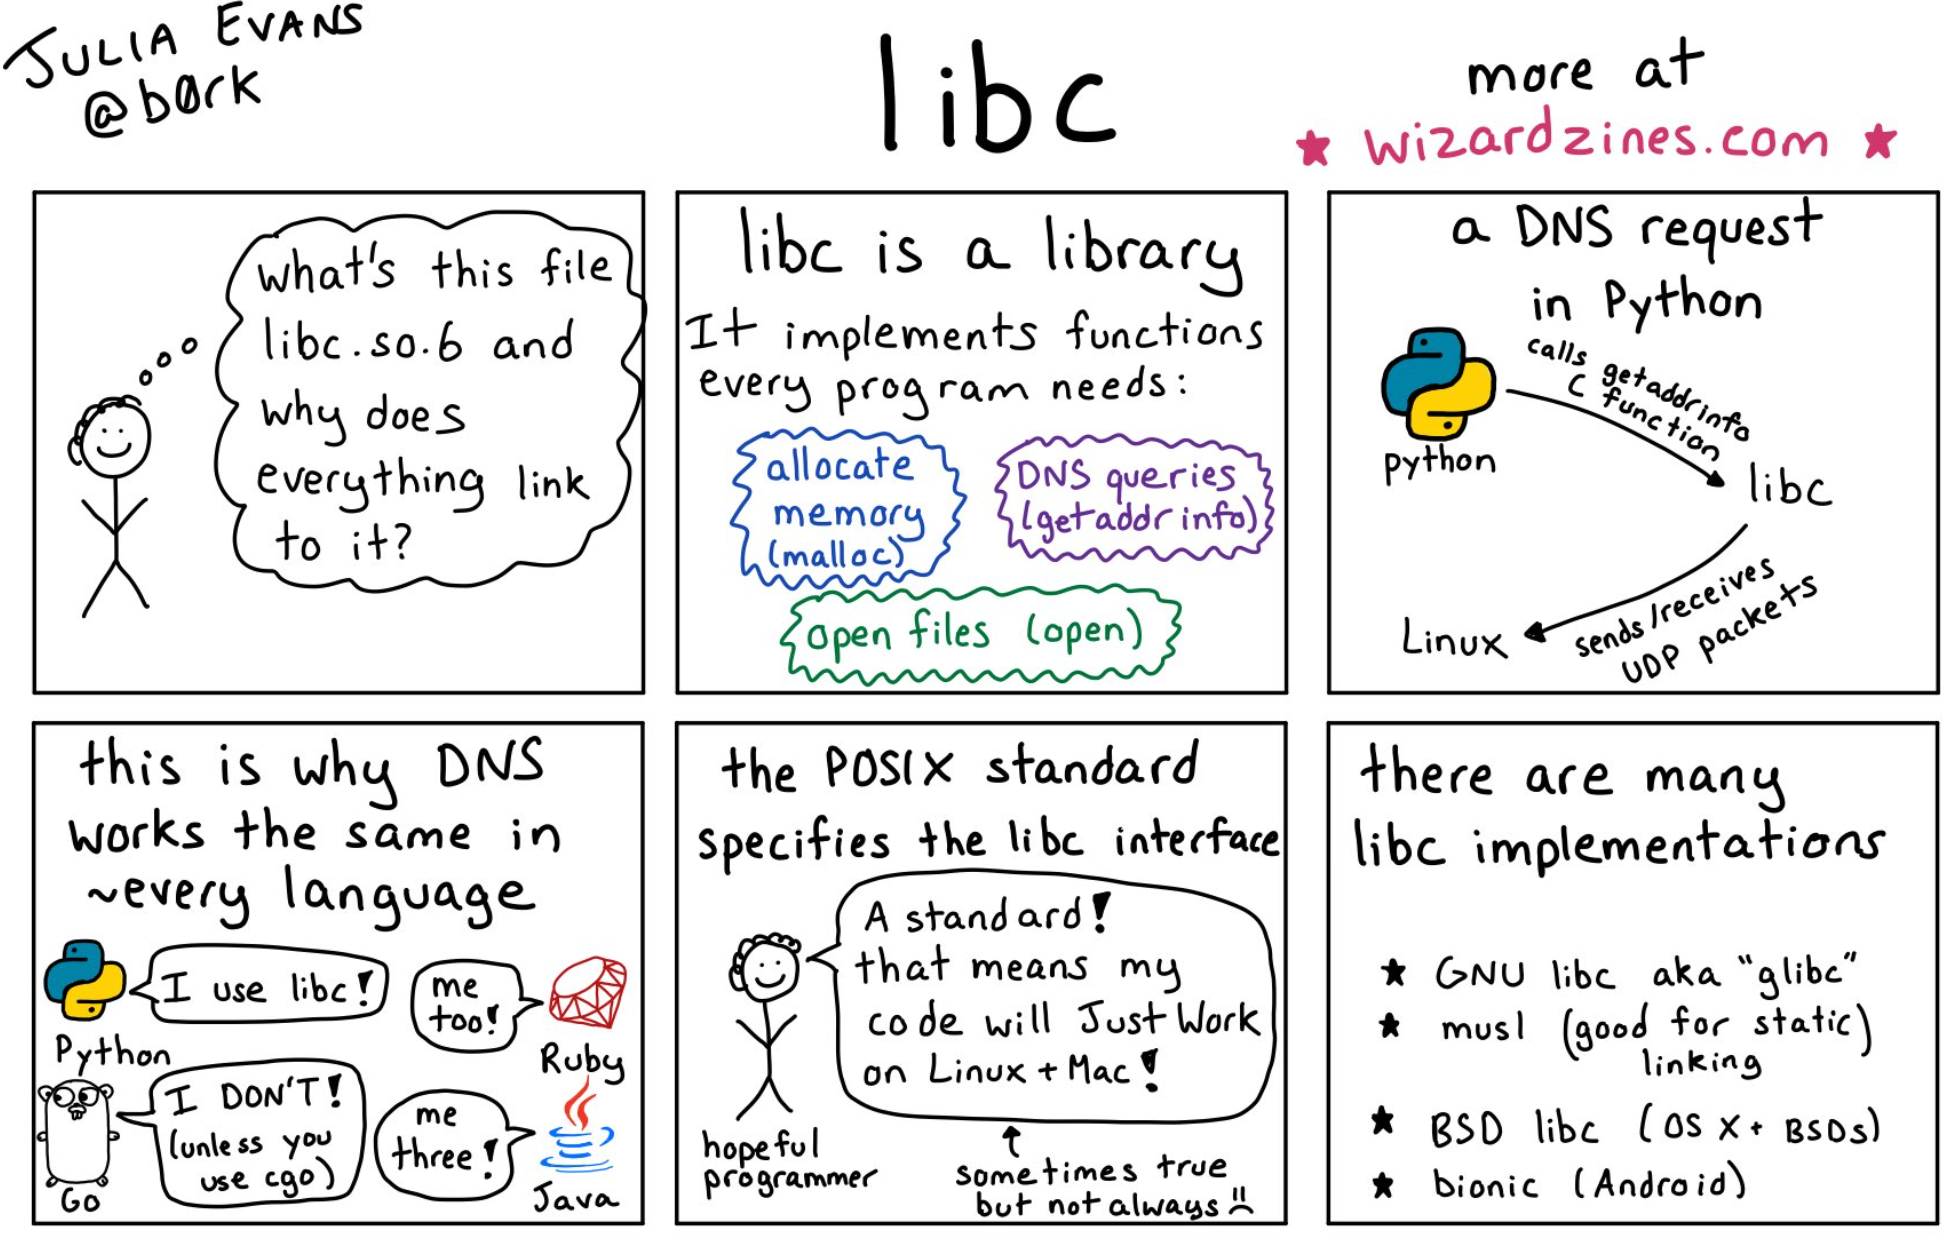 JULIA EVANS
@b0rk
libc
more at
★ wizardzines.com ★
what's this file
libc.so.6 and
why does
everything link
to it?
libc is a library
It implements functions
every program needs:
allocate
memory
(malloc)
DNS queries
(getaddrinfo)
open files (open)
a DNS request
in Python
python
calls getaddrinfo
C function
libc
sends/receives
UDP packets
Linux
this is why DNS
works the same in
~every language
I use libc!
Python
me
too!
Ruby
I DON'T!
(unless you
use cgo)
Go
me
three!
Java
the POSIX standard
specifies the libc interface
A standard!
that means my
code will Just Work
on Linux + Mac!
hopeful
programmer
sometimes true
but not always :(
there are many
libc implementations
★ GNU libc aka "glibc"
★ musl (good for static
linking)
★ BSD libc (OS X + BSDs)
★ bionic (Android)